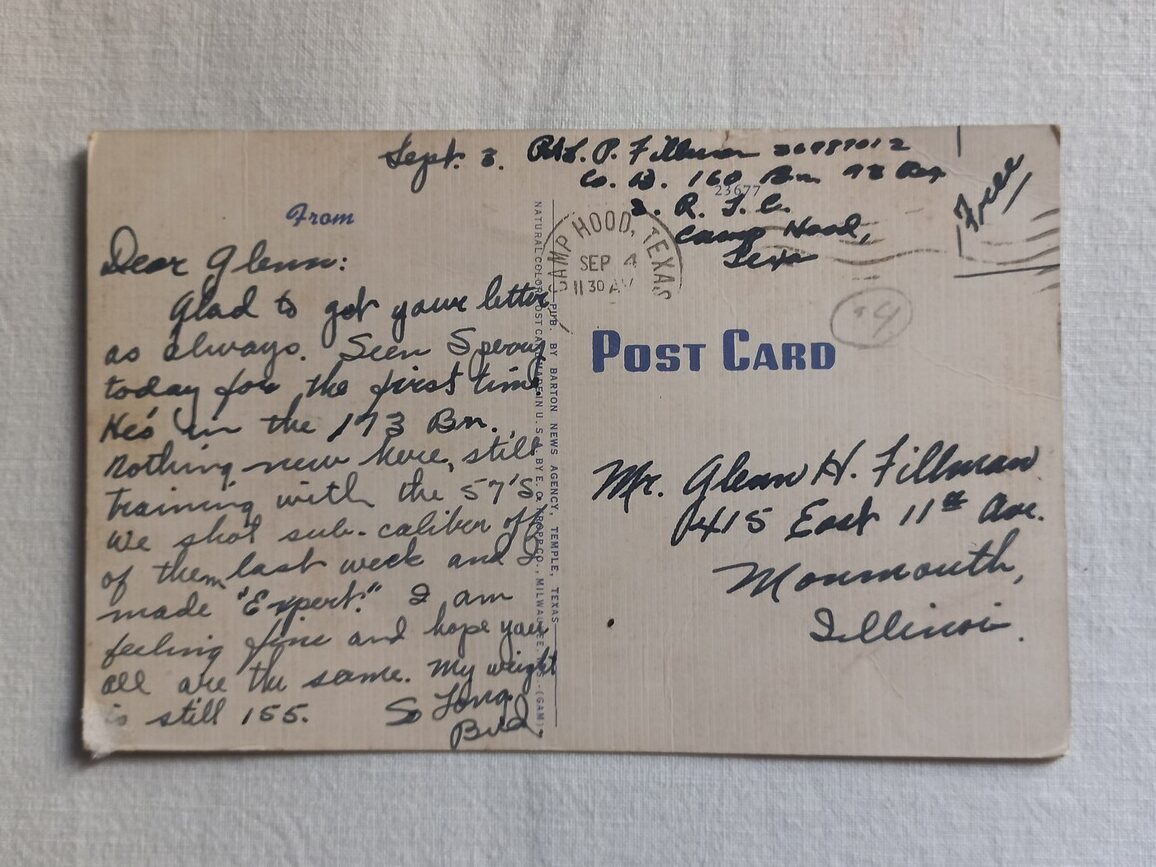 Sept. 3. Pvt. P. Fillman
Co. D. 160 Bn. 98 Reg
23677
I. R. T. C.
Camp Hood,
Texas
Free
From
CAMP HOOD, TEXAS
SEP 4
11 30 AM
POST CARD
Dear Glenn:
Glad to get your letter
as always. Seen Sperry
today for the first time.
He's in the 173 Bn.
Nothing new here, still
training with the 57's
We shot sub-caliber off
of them last week and I
made "Expert." I am
feeling fine and hope you
all are the same. My weight
is still 155. So Long
Bud.
NATURAL COLOR POST CARD MADE IN U. S. A. BY E. C. KROPP CO., MILWAUKEE, WIS. (GAM).
PUB. BY BARTON NEWS AGENCY, TEMPLE, TEXAS
Mr. Glenn H. Fillman
1415 East 11th Ave.
Monmouth,
Illinois.